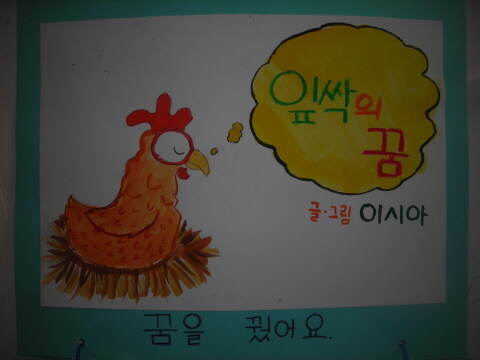 잎싹의
꿈
글·그림 이시아
꿈을 꿨어요.